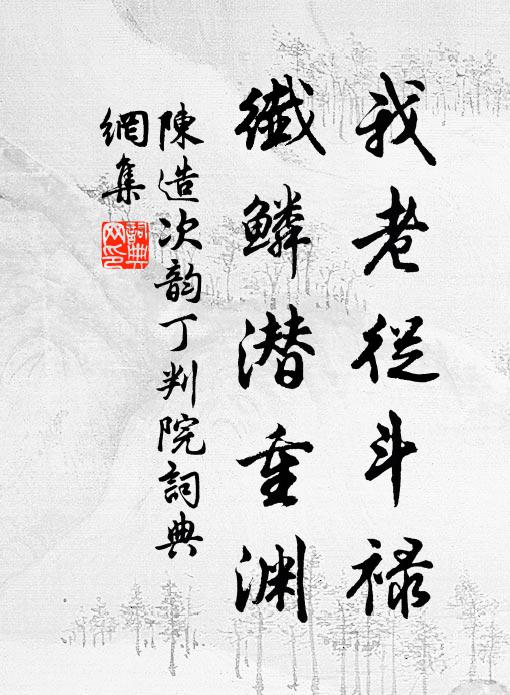 我老從斗禄
纖鱗潜重淵
陳造次韵丁判院詞典
網集
詞典網印